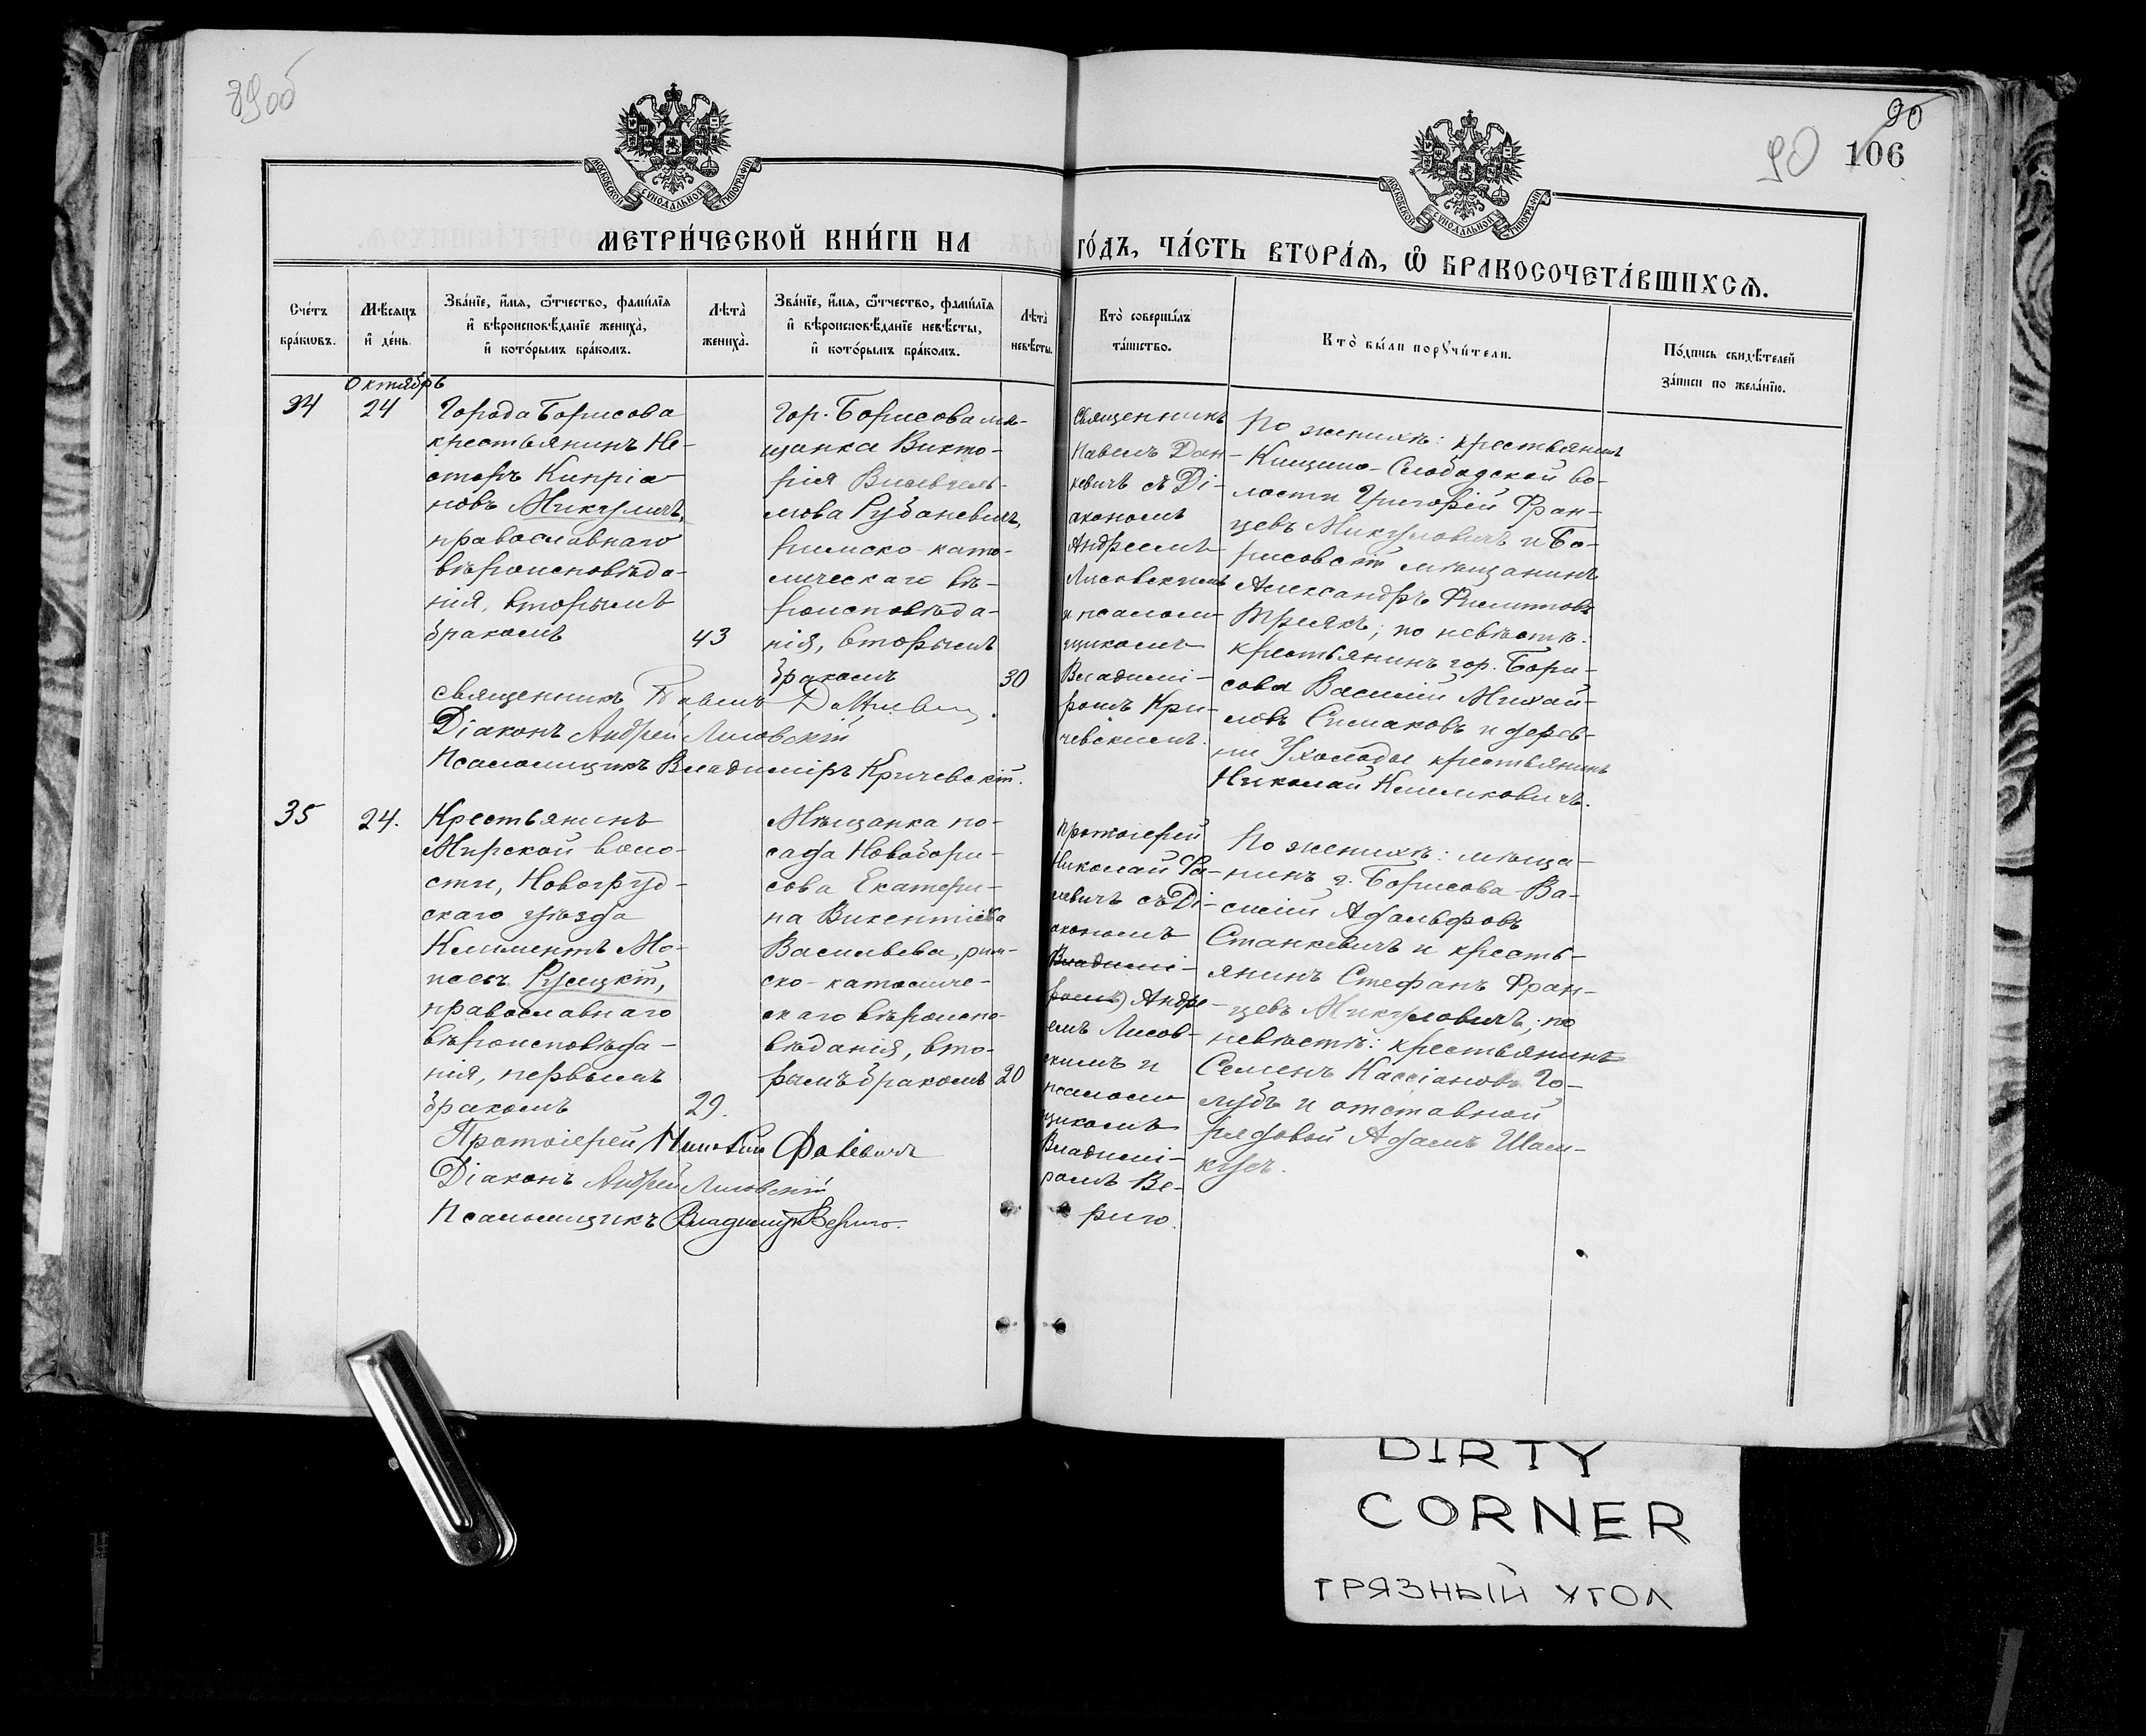 89об
90
90 106
МОСКОВСКОЙ СУНОДАЛЬНОЙ ТИПОГРАФІИ
МОСКОВСКОЙ СУНОДАЛЬНОЙ ТИПОГРАФІИ
МЕТРИ́ЧЕСКОЙ КНИ́ГИ НА
ГО́ДЪ, ЧА́СТЬ ВТОРА́Ѧ, Ѽ БРАКОСОЧЕТА́ВШИХСѦ.
Сче́тъ
бра́кѡвъ.
Мѣ́сяцъ
и҆ де́нь.
Зва́нїе, и҆́мя, ѻ҆́тчество, фами́лїя
и҆ вѣроисповѣ́данїе жениха̀,
и҆ кото́рымъ бра́комъ.
Лѣта̀
жениха̀.
Зва́нїе, и҆́мя, ѻ҆́тчество, фами́лїя
и҆ вѣроисповѣ́данїе невѣ́сты,
и҆ кото́рымъ бра́комъ.
Лѣта̀
невѣ́сты.
Кто̀ соверша́лъ
та́инство.
Кто̀ бы́ли порꙋчи́тели.
По́дпись свидѣ́телей
за́писи по жела́нїю.
Октябрь
34
24
Города Борисова
крестьянинъ Не-
сторъ Кипріа-
новъ Микуличъ,
православнаго
вѣроисповѣда-
нія, вторымъ
бракомъ
43
Гор. Борисова мѣ-
щанка Викто-
рія Вильгель-
мова Рубаневичъ,
римско-като-
лическаго вѣ-
роисповѣда-
нія, вторымъ
бракомъ
30
Священникъ
Павелъ Дан-
кевичъ съ Ді-
акономъ
Андреемъ
Лисовскимъ
и псалом-
щикомъ
Владимі-
ромъ Кри-
чевскимъ.
По женихѣ: крестьянинъ
Кищино-Слободской во-
лости Григорій Фран-
цевъ Микуловичъ и Бо-
рисовскій мѣщанинъ
Александръ Филиповъ
; по невѣстѣ:
крестьянинъ гор. Бори-
сова Василій Михай-
ловъ Симаковъ и дерев-
ни Ухолоды крестьянинъ
Николай Климковичъ.
священникъ Павелъ Данкевичъ.
Діаконъ Андрей Лисовскій
Псаломщикъ Владиміръ Кричевскій.
35
24.
Крестьянинъ
Мирской воло-
сти, Новогруд-
скаго уѣзда
Климентъ Мо-
псеъ Русецкій,
православнаго
вѣроисповѣда-
нія, первымъ
бракомъ
29.
Мѣщанка по-
сада Новобори-
сова Екатери-
на Викентіева
Васильева, рим-
ско-католиче-
скаго вѣроиспо-
вѣданія, вто-
рымъ бракомъ
20
Протоіерей
Николай Фа-
левичъ съ Ді-
акономъ
Владимі-
ромъ) Андре-
емъ Лисов-
скимъ и
псалом
щикомъ
Владимі-
ромъ Ве-
риго.
По женихѣ: мѣща-
нинъ г. Борисова Ва-
силій Адольфовъ
Станкевичъ и кресть-
янинъ Стефанъ Фран-
цевъ Микуловичъ; по
невѣстѣ: крестьянинъ
Семенъ Кассіановъ Го-
лубъ и отставной
рядовой Адамъ Шам-
кусъ.
Протоіерей Николай Фалевичъ
Діаконъ Андрей Лисовскій
Псаломщикъ Владиміръ Вериго.
DIRTY
CORNER
ГРЯЗНЫЙ УГОЛ